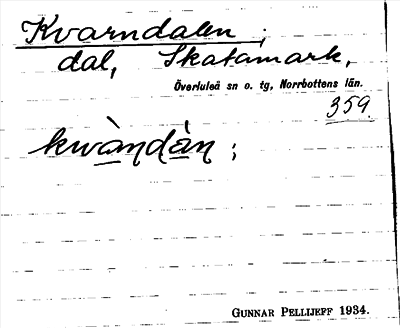 Kvarndalen ;
dal, Skatamark,
Överluleå sn o. tg, Norrbottens län.
359
kwàndàn ;
GUNNAR PELLIJEFF 1934.